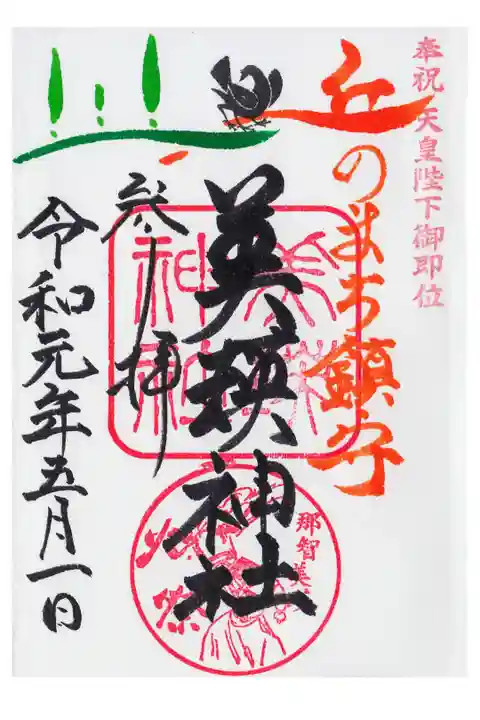 奉祝 天皇陛下御即位
丘のまち鎮守
美瑛神社
参拝
令和元年五月一日
美瑛
神社
那智美
火祭